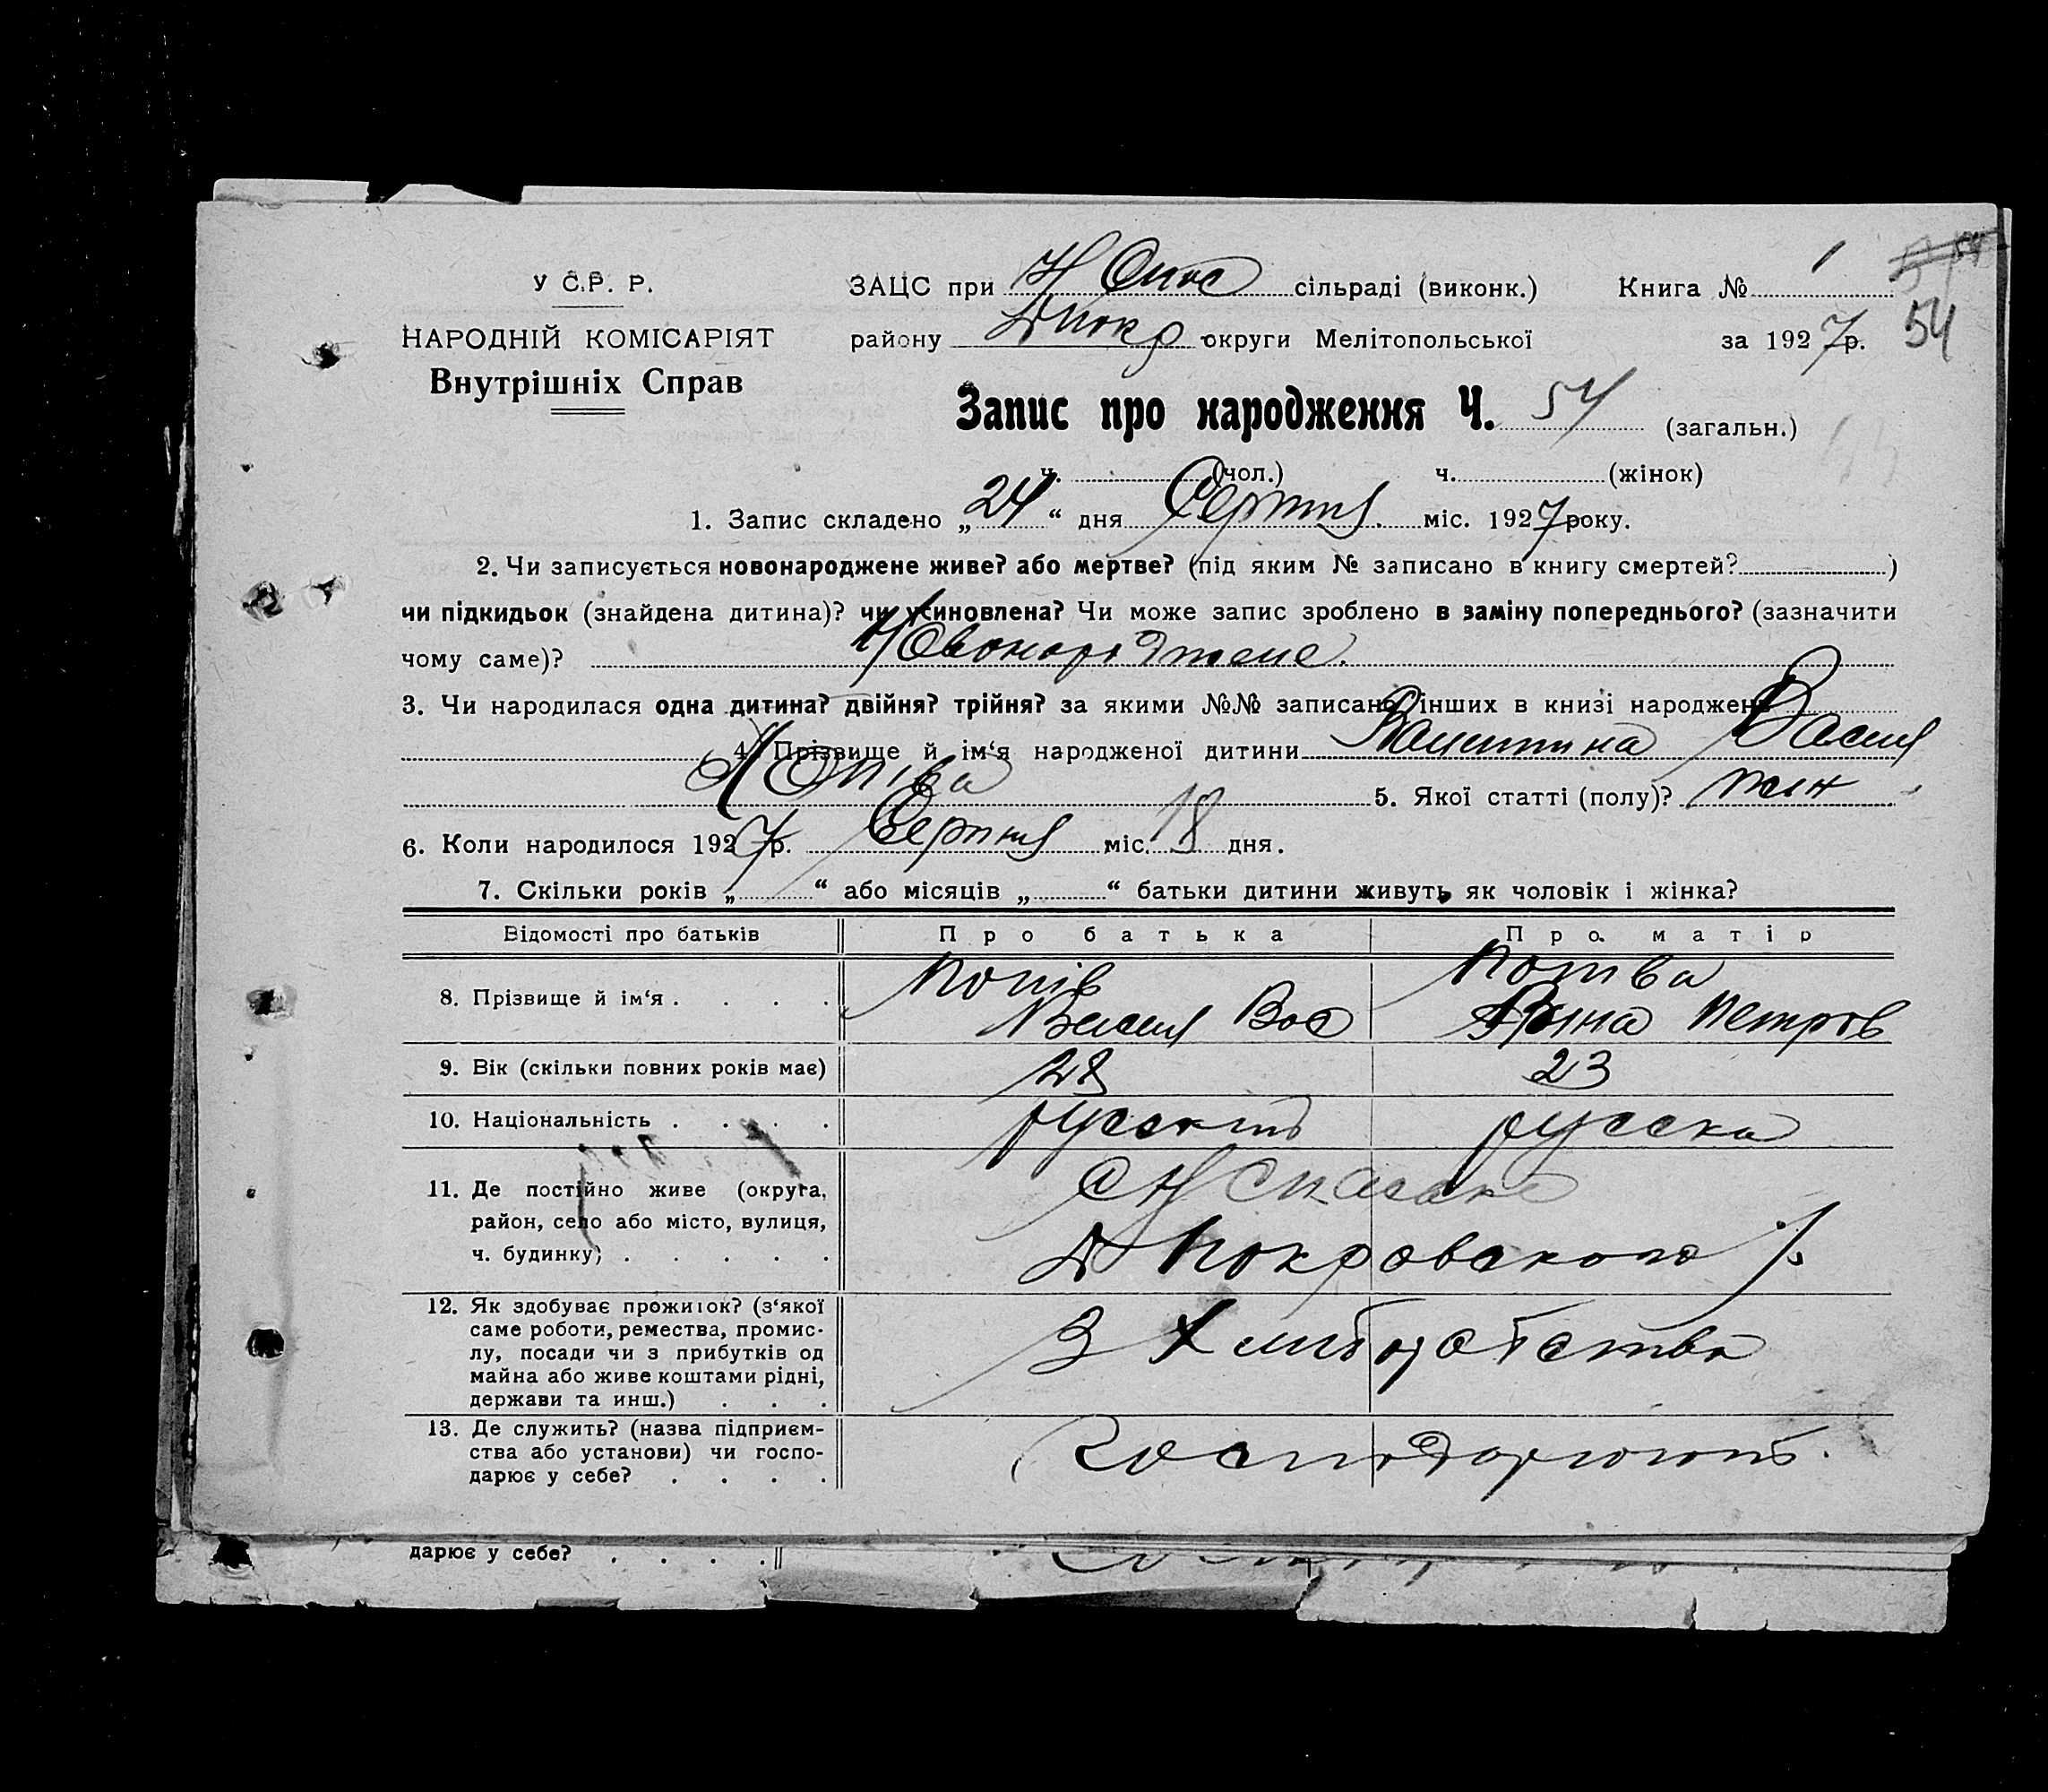 У С.Р. Р.
НАРОДНІЙ КОМІСАРІЯТ
Внутрішніх Справ
ЗАЦС при Н Спас сільраді (виконк.) Книга № 1
району округи Мелітопольської за 1927р. 54
Запис про народження Ч. 54 (загальн.)
ч. (чол.) ч. (жінок)
1. Запис складено „24“ дня Серпня міс. 1927 року.
2. Чи записується новонароджене живе? або мертве? (під яким № записано в книгу смертей? )
чи підкидьок (знайдена дитина)? чи усиновлена? Чи може запис зроблено в заміну попереднього? (зазначити
чому саме)? Новонароджене.
3. Чи народилася одна дитина? двійня? трійня? за якими №№ записано інших в книзі народжень
4. Прізвище й ім‘я народженої дитини Валентина Васил
Попіва 5. Якої статті (полу)? жін
6. Коли народилося 1927р. Серпня міс. 18 дня.
7. Скільки років „ “ або місяців „ “ батьки дитини живуть як чоловік і жінка?
Відомості про батьків Про батька Про матір
8. Прізвище й ім‘я . . . . Попів Попіва
Василь Вас Петров
9. Вік (скільки повних років має) 28 23
10. Національність . . . . русский русска
11. Де постійно живе (округа,
район, село або місто, вулиця,
ч. будинку) . . . . .
с Н Спаське
Покровського р.
12. Як здобуває прожиток? (з‘якої
саме роботи, ремества, промис-
лу, посади чи з прибутків од
майна або живе коштами рідні,
держави та инш.) . . .
З Хлиборобства
13. Де служить? (назва підприєм-
ства або установи) чи госпо-
дарює у себе? . . . .
Господарюють.
дарює у себе? . . . .